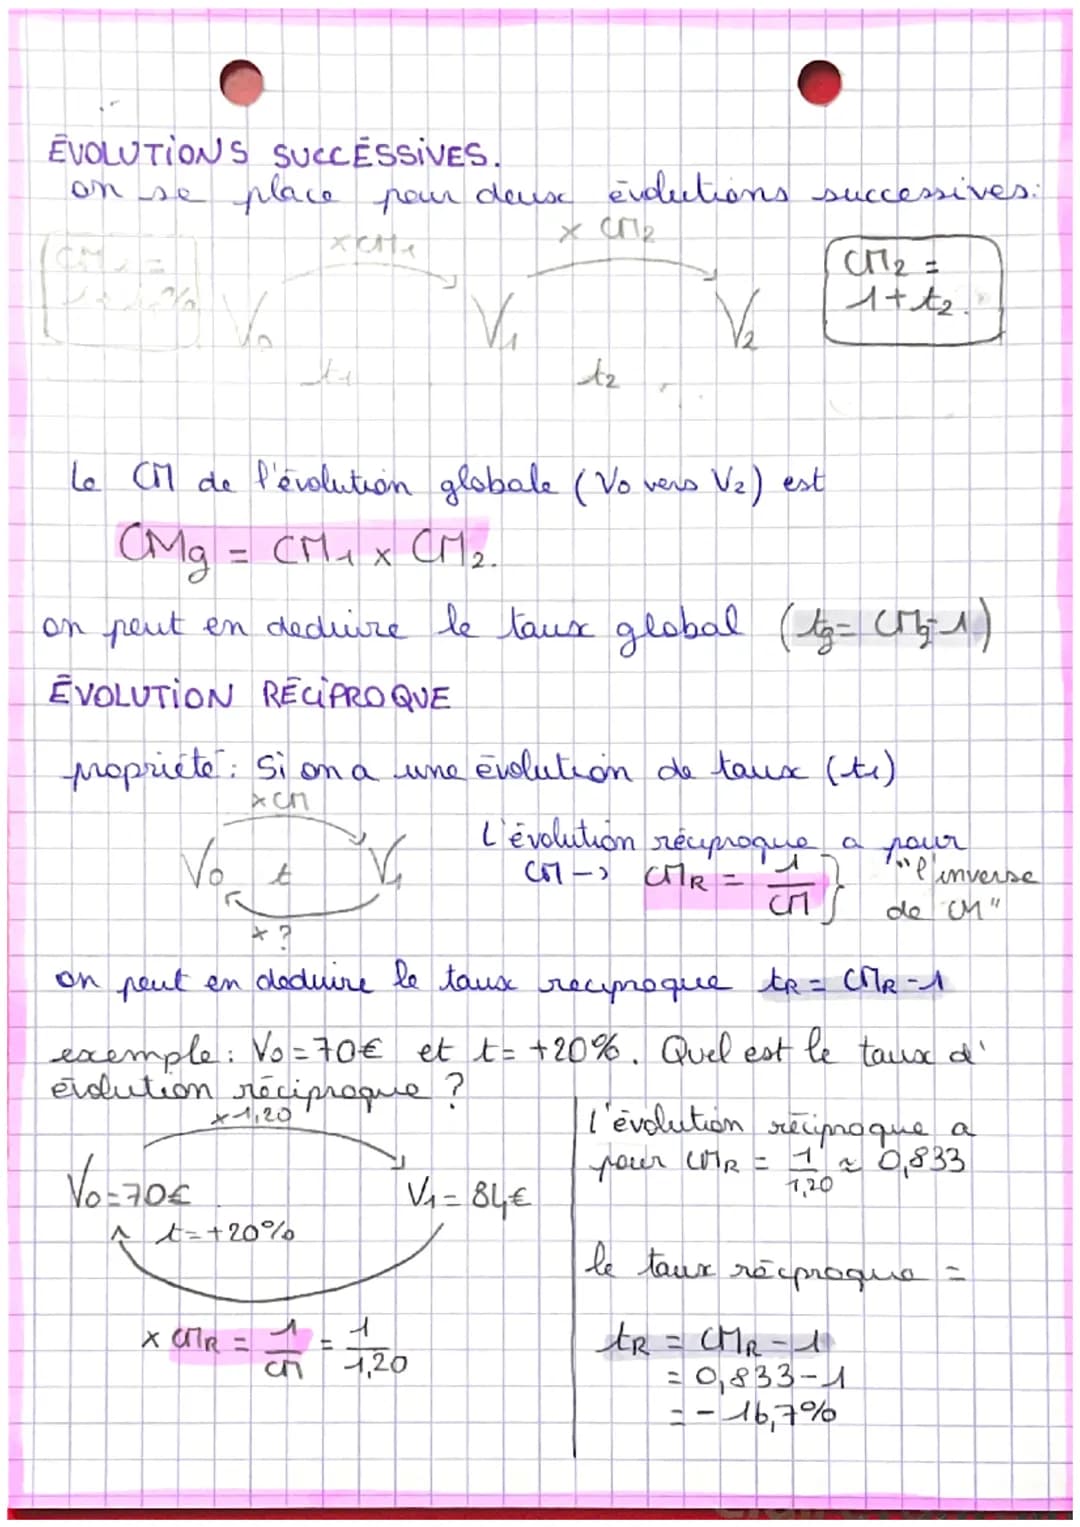 ÉVOLUTIONS SUCCÉSSIVES.
on se place pour deux évolutions successives:
×CM1 × CM2
CM1 = 1+t1% V0 V1 V2 CM2 = 1+t2.
t1 t2
Le CM de l'évolution globale (V0 vers V2) est
CMg = CM1 × CM2.
on peut en deduire le taux global (tg= CMg-1)
ÉVOLUTION RÉCIPROQUE
propriété: Si on a une évolution de taux (t1)
×CM
V0 t V1
× ?
L'évolution réciproque a pour
CM -> CMR = 1/CM } "l'inverse de CM"
on peut en déduire le taux reciproque tR = CMR -1
exemple: V0=70€ et t= +20%. Quel est le taux d'
évolution réciproque ?
×1,20
V0=70€ V1= 84€
t=+20%
× CMR = 1/CM = 1/1,20
l'évolution réciproque a
pour CMR = 1/1,20 ≈ 0,833
le taux réciproque =
tR = CMR -1
= 0,833-1
= - 16,7%